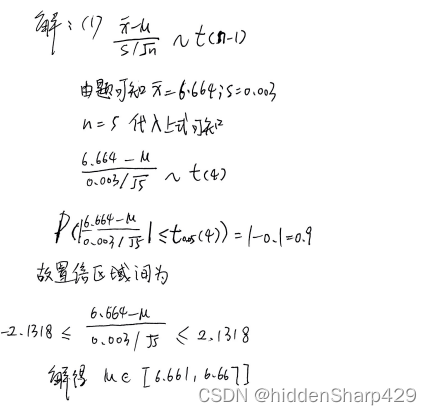 解：(1) x̄-μ / S/√n ~ t(n-1)
由题可知 x̄=6.664；s=0.003
n=5 代入上式可知
6.664-μ / 0.003/√5 ~ t(4)
P(|6.664-μ / 0.003/√5| ≤ t0.05(4)) = 1-0.1=0.9
故置信区域间为
-2.1318 ≤ 6.664-μ / 0.003/√5 ≤ 2.1318
解得 μ∈[6.661, 6.667]
CSDN @hiddenSharp429